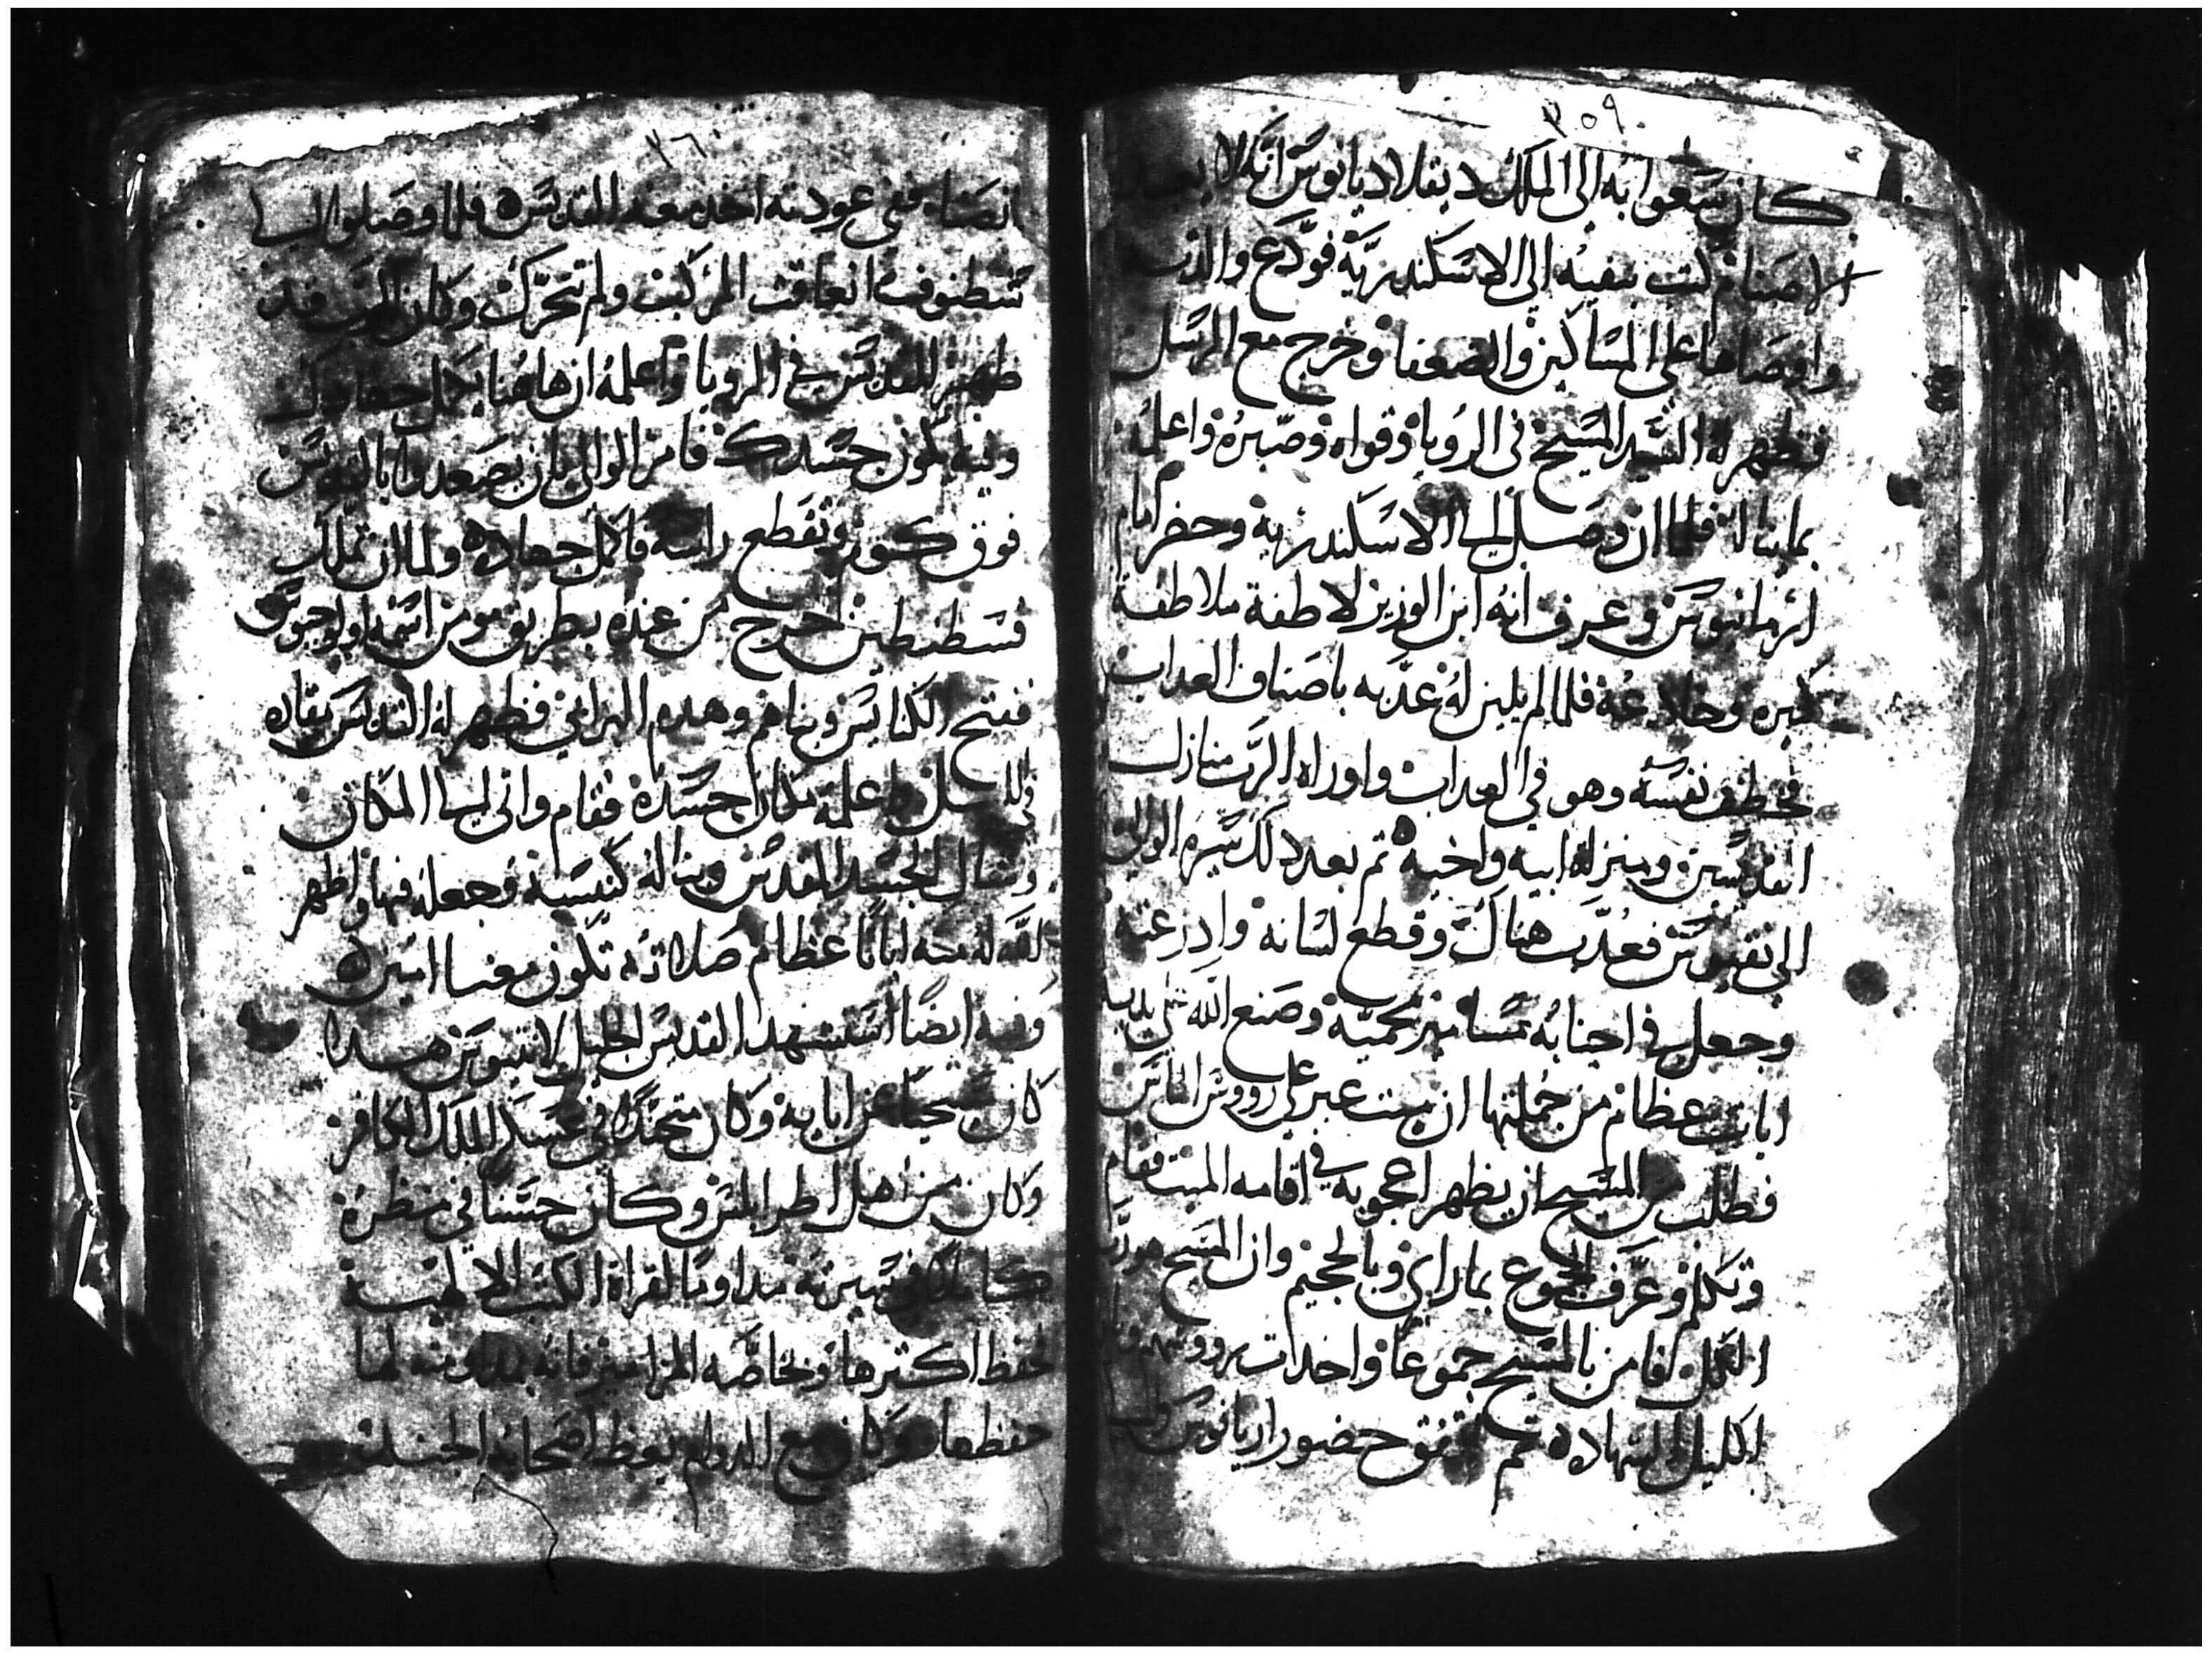 ٣٥٩
كان سعوا به الى الملك ديقلاديانوس انه لا يعبد
الاصنام كتب بنفيه الى الاسكندرية فودع والدته
واوصاها على المساكين والضعفا وخرج مع المرسل
فظهر له السيد المسيح في الرويا وقواه وصبره واعلمه
بما يناله فلما ان وصل الى الاسكندرية وحضر امام
ارمانيوس وعرف انه ابن الوزير لاطفة ملاطفة
كبيره وخادعة فلما لم يلين له عذبه باصناف العداب
فخطف نفسه وهو في العداب واوراه الرب منازل
القديسين ومنزلة ابيه واخيه ثم بعد دلك سيره الوالي
الى نقيوس فعدب هناك وقطع لسانه وادرعته
وجعل في اجنابه مسامير محمية وصنع الله على يديه
ايات عظام من جملتها ان ميت عبر على رووس الناس
فطلب من المسيح ان يظهر اعجوبه في اقامه الميت فقام
وتكلم وعرف الجموع بما راى وبالجحيم وان المسيح هو رب
الكل فامن بالمسيح جموعا واخدات رووسهم
اكليل الشهاده ثم اتفق حضور اريانوس والي
٣٦٠
انصنا ففي عودته اخد معه القديس فلما وصلوا الى
شطنوف انعاقت المركب ولم تتحرك وكان الرب قد
ظهر للقديس في الرويا واعلمه ان هاهنا يكمل جهادك
وفيه يكون جسدك فامر الوالي بان يصعدوا بالقديس
فوق كوم وتقطع راسه فاكمل جهاده ولما ان تملك
قسطنطين اخرج من عنده بطريق مومن اسمه اولوجيوس
ففتح الكنايس وبناهم وهدم البرابي فظهر له القديس بقاده
في الليل واعلمه مكان جسده فقام واتى الى المكان
وشال الجسد المقدس وبنا له كنيسة وجعله فيها واظهر
الله منه اياتا عظام صلاته تكون معنا امين
وفيه ايضا استشهد القديس الجليل لانتيوس هدا
كان مسيحيا عن ابايه وكان متجندا في عسكر الملك الكافر
وكان من اهل اطرابلس وكان حسنا في منظره
كاملا في سيرته مداوما لقراة الكتب الالهية
يحفظ اكثرها وبخاصه المزامير فانه بمداومته لها
حفظها وكان مع الدوام يعظ اصحابه الجند